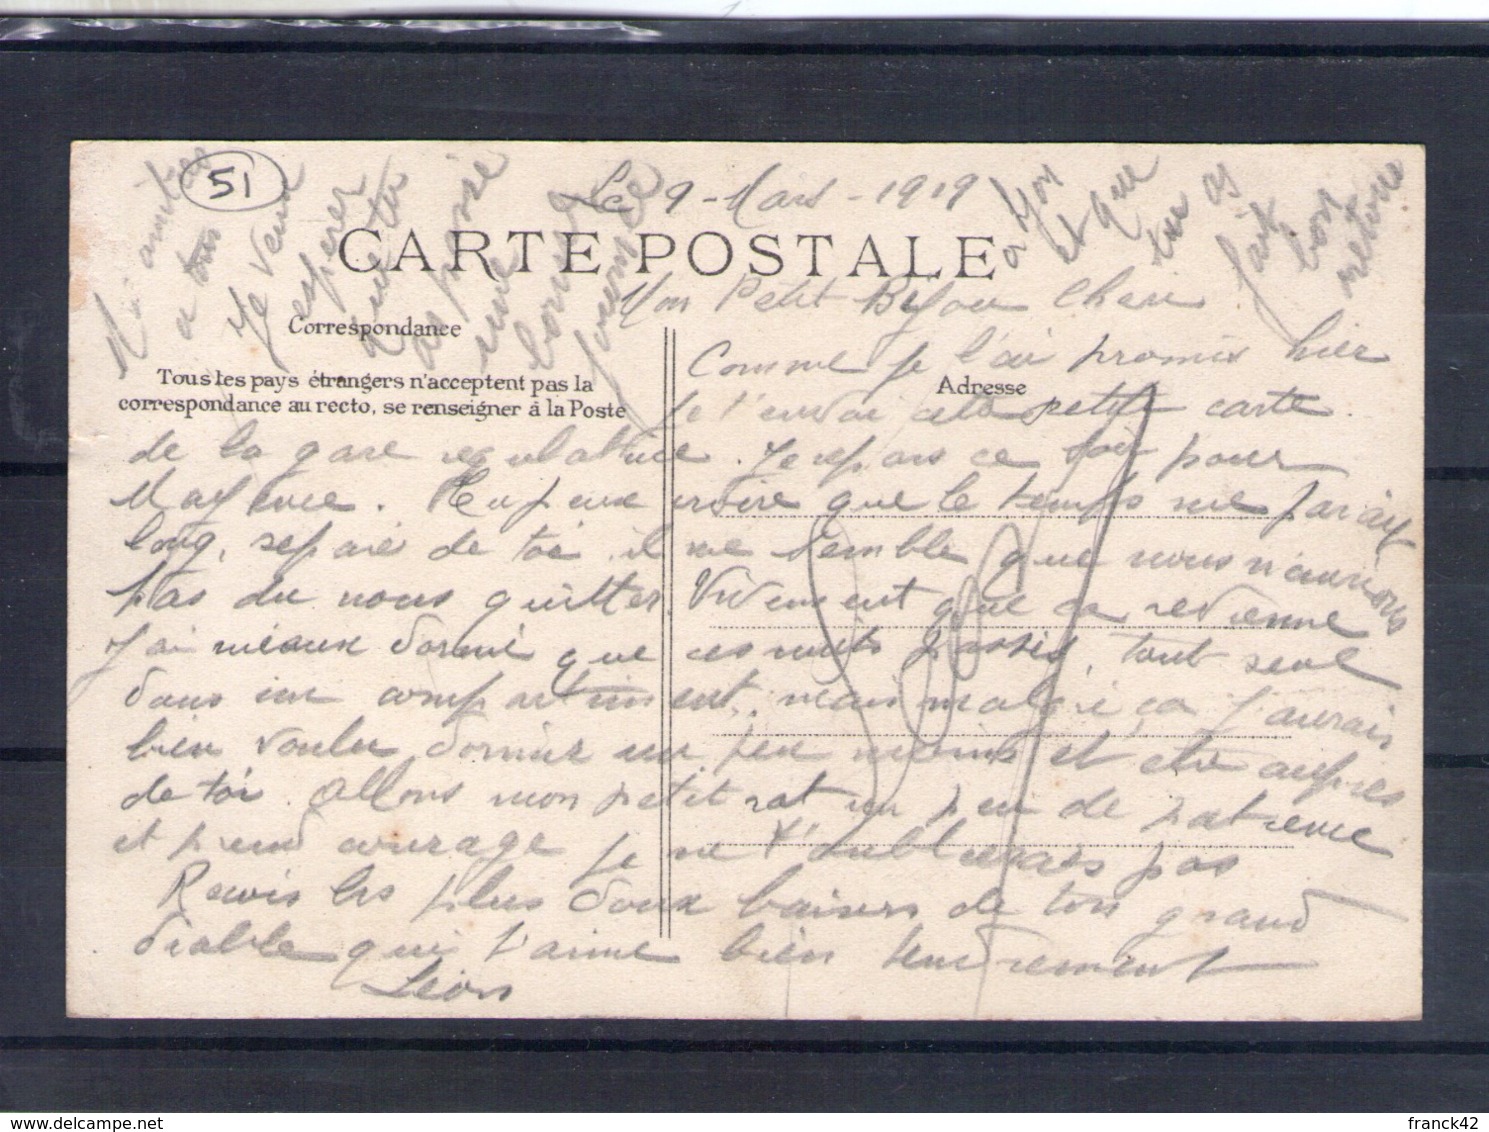 51
Le 9 - Mars - 1919
CARTE POSTALE
Mes amitiés
a tous
Je veux
espérer
que tu
as passé
une
bonne
journée
a Yon
et que
tu as
fait
bon
retour
Mon Petit Bijou Cheri
Correspondance
Tous les pays étrangers n'acceptent pas la
correspondance au recto, se renseigner à la Poste
Adresse
Comme je t'ai promis hier
je t'envoi cete petite carte
de la gare regulatrice. Je repars ce soir pour
Mayence. Tu peux croire que le temps me parait
long, séparé de toi il me semble que nous n'aurions
pas du nous quitter Vivement que ca revienne
J'ai mieux dormi que ces nuits passés, tout seul
dans un compartiment, mais malgré ça j'aurais
bien voulu dormir un peu moins et etre auprès
de toi. Allons mon petit rat un peu de patience
et prend courage je ne t'oublierais pas
Recois les plus doux baisers de ton grand
diable qui t'aime bien tendrement
Léon
franck42